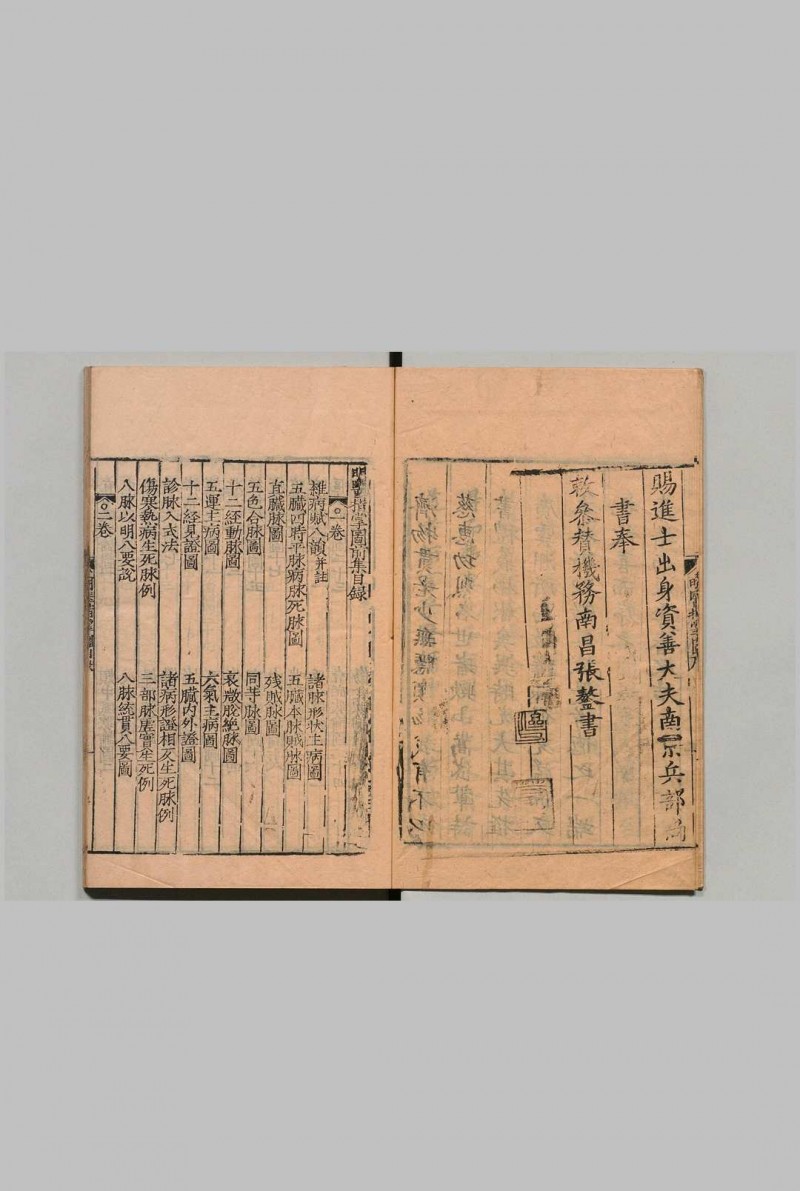 賜進士出身資善大夫南京兵部尚
書奉
敕參贊機務南昌張鏊書
明醫指掌圖前集目錄
一卷
雜病賦入韻并註
諸脉形狀主病圖
五臟四時平脉病脉死脉圖
五臟本脉賊脉圖
真臟脉圖
残賊脉圖
五色合脉圖
同等脉圖
十二經動脉圖
五運主病圖
六氣主病圖
十二經見證圖
五臟內外證圖
診脉入式法
諸病形證相反生死脉例
傷寒熱病生死脉例
三部脉虛實生死例
八脉以明八要說
八脉統貫八要圖
二卷